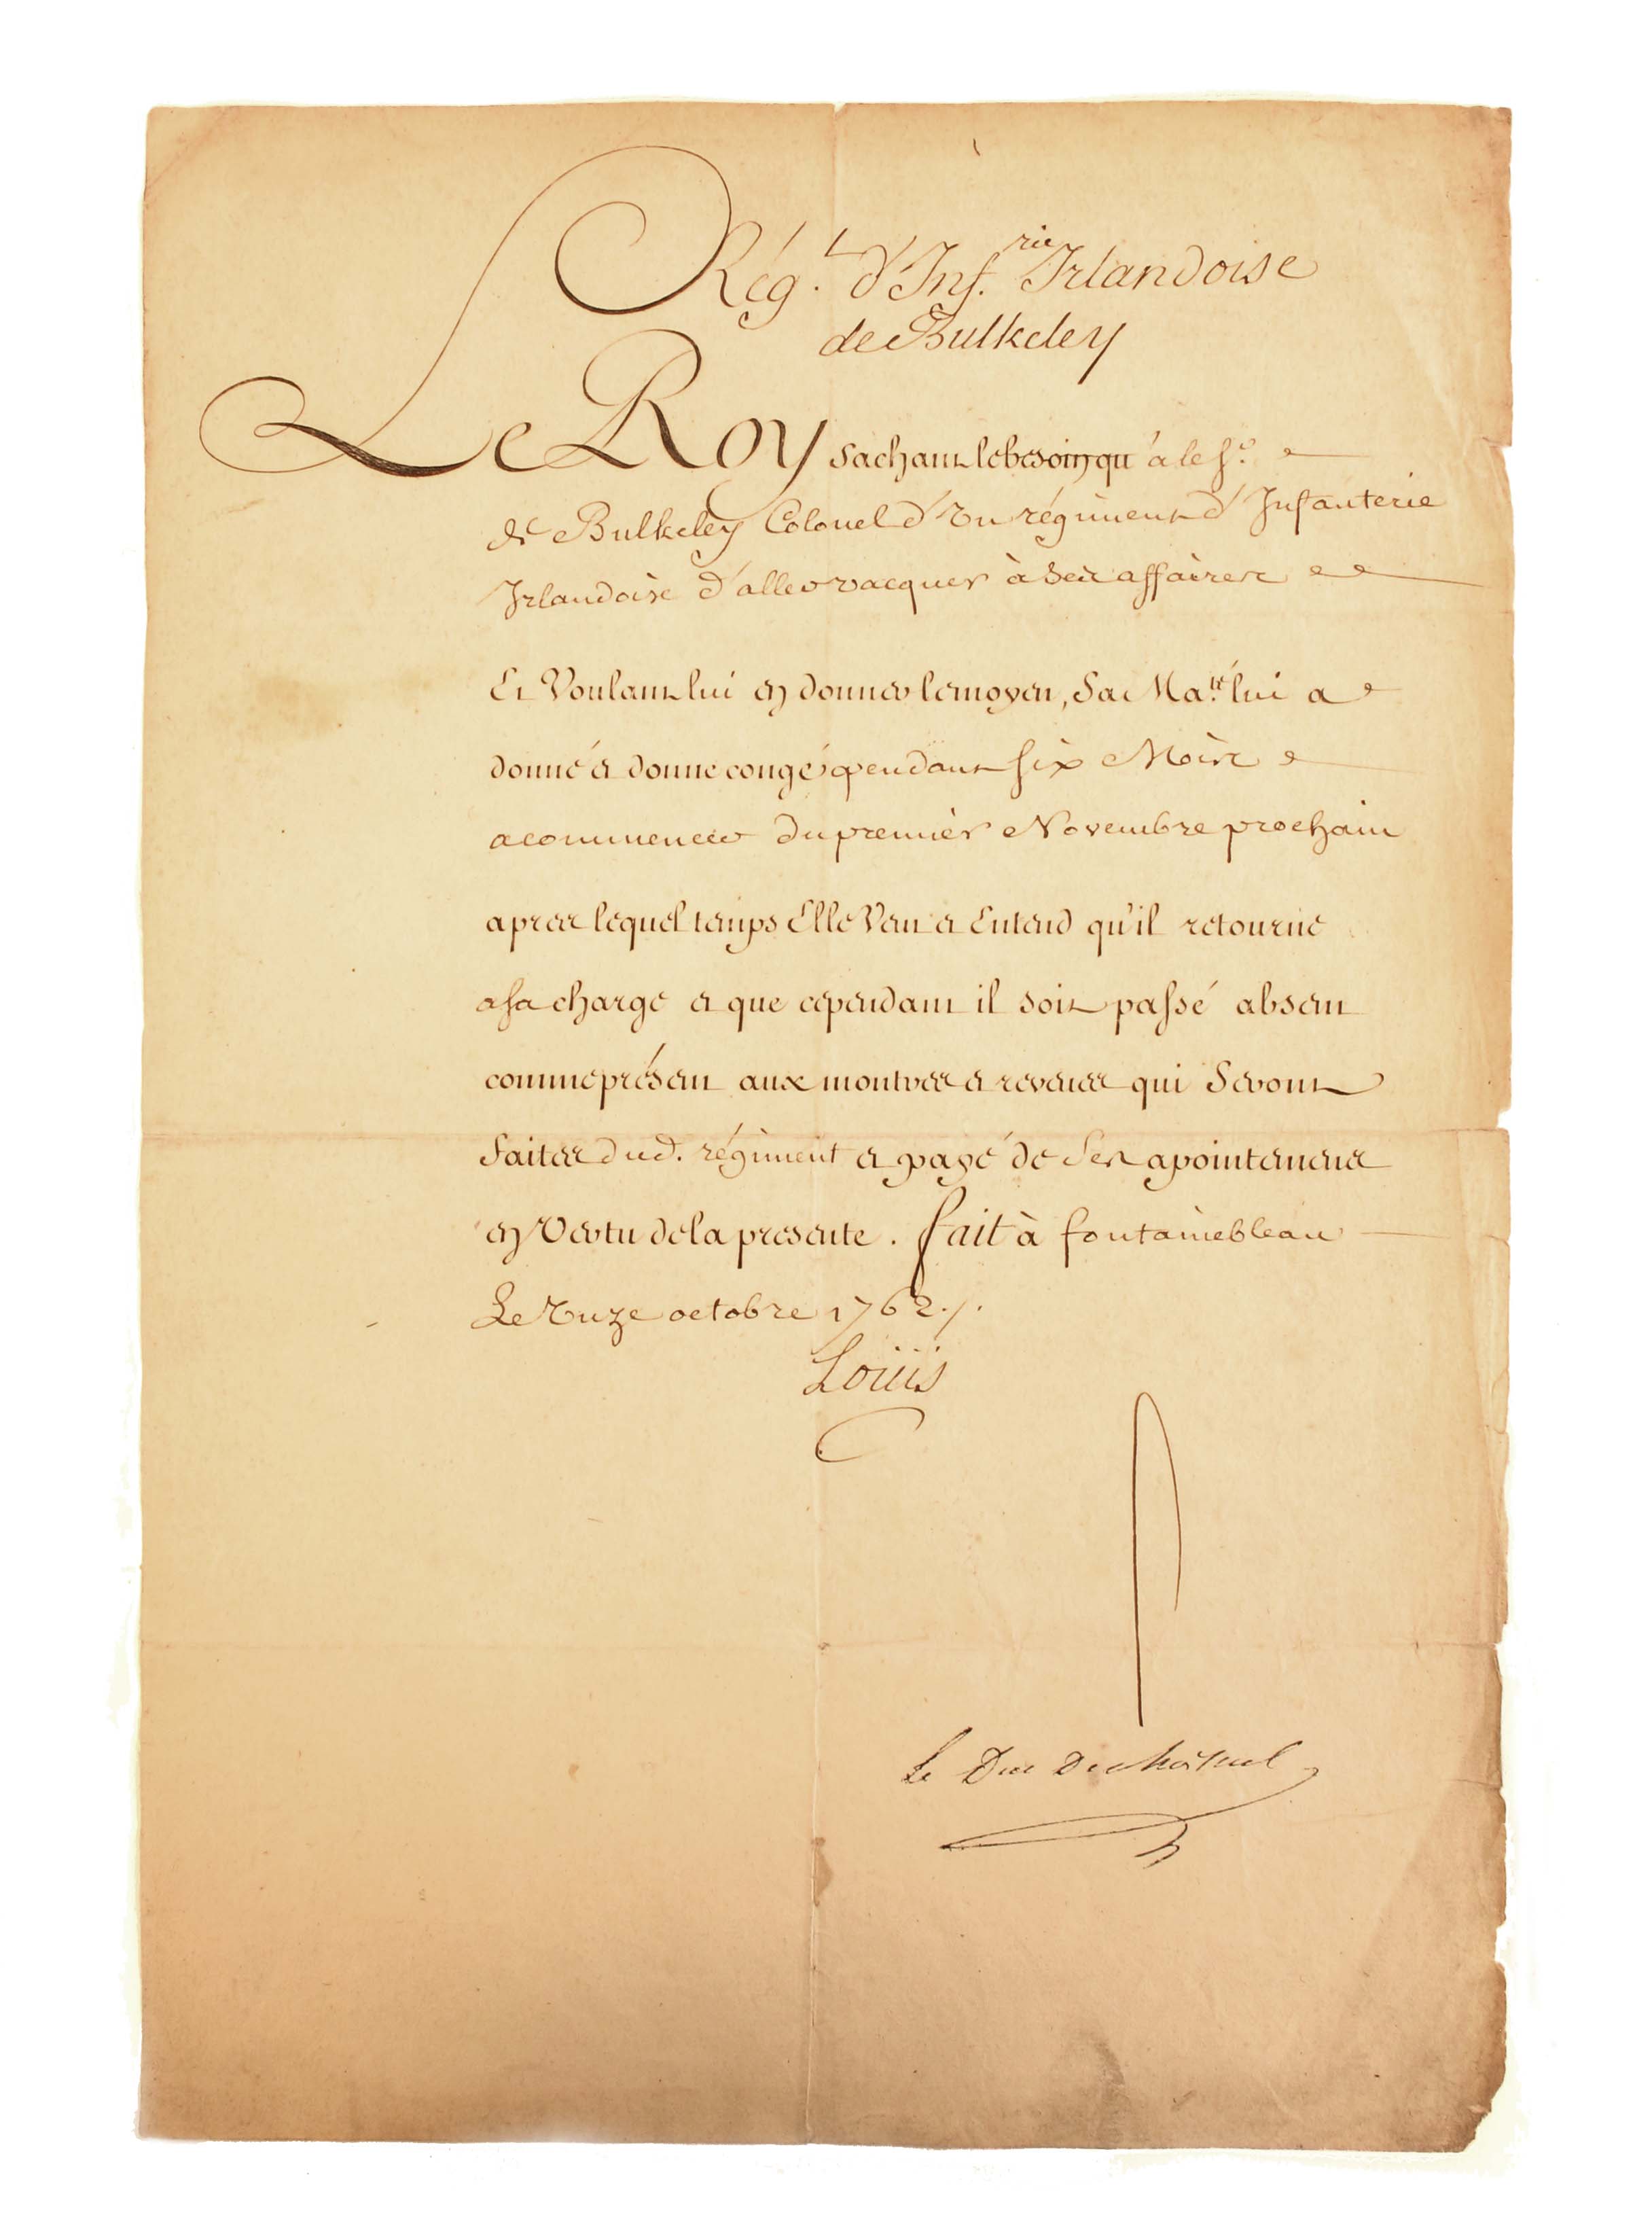 Rég.t d'Inf.rie Irlandoise
de Bulkeley
Le Roy sachant le besoin qu'a le S.r
de Bulkeley Colonel d'un régiment d'Infanterie
Irlandoise d'aller vacquer à ses affaires
Et Voulant lui en donner le moyen, Sa Ma.té lui a
donné et donne congé pendant six Mois
a commencer du premier Novembre prochain
apres lequel temps Elle Veut et Entend qu'il retourne
a sa charge et que cependant il soit passé absent
comme présent aux montres et reveues qui Seront
faites dud. régiment et payé de Ses apointemens
en Vertu de la presente. fait à fontainebleau
Le Onze octobre 1762./.
Louis
Le Duc De choiseul